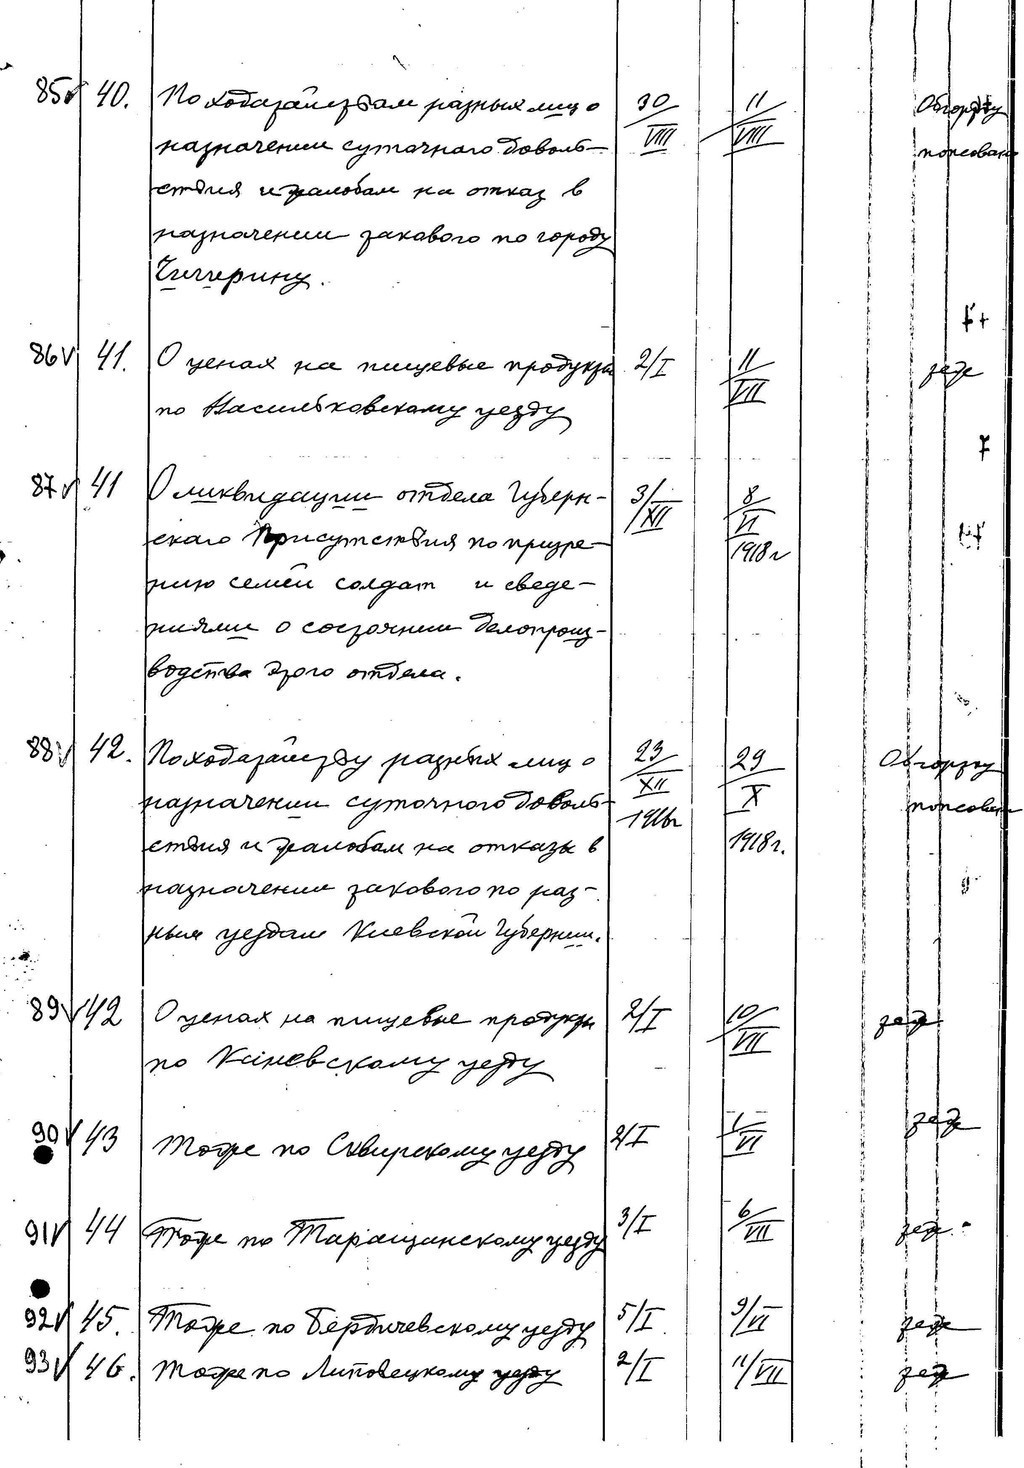 85 40. По ходатайствам разных лиц о 30/VIII 11/VIII
назначении суточного доволь-
ствия и жалобам на отказ в
назначении такового по городу
Чигирину.
86 41. О ценах на пищевые продукты 2/I 11/VII тоже
по Васильковскому уезду
87 41 О ликвидации отдела Губерн- 3/XII 8/VI 1918г
скаго Присутствия по призре-
нию семей солдат и сведе-
ниями о состоянии делопроиз-
водства этого отдела.
88 42. По ходатайству разных лиц о 23/XII 1916г 29/X 1918г.
назначении суточного доволь-
ствия и жалобам на отказы в
назначении такового по раз-
ным уездам Киевской Губернии.
89 42 О ценах на пищевые продукты 2/I 10/VII тоже
по Каневскому уезду
90 43 Тоже по Сквирскому уезду 2/I 1/VI тоже
91 44 Тоже по Таращанскому уезду 3/I 6/VII тоже
92 45. Тоже по Бердичевскому уезду 5/I 9/VI тоже
93 46. Тоже по Липовецкому уезду 2/I 11/VII тоже